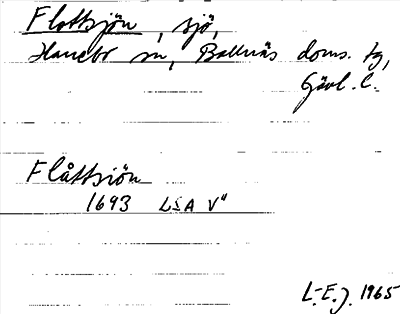 Flottsjön, sjö,
Hanebo sn, Bollnäs doms. tg,
Gävl. l.
Flåttsiön
1693 LSA V"
L-E.J. 1965